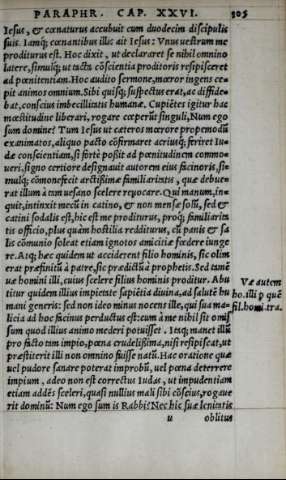 PARAPHR. CAP. XXVI. 305
Iesus, & cœnaturus accubuit cum duodecim discipulis
suis. Iamq; cœnantibus illis ait Iesus: Vnus uestrum me
proditurus est. Hoc dixit, ut declararet se nihil omnino
latere, simulq; ut tacta cōscientia proditoris resipisceret
ad pœnitentiam. Hoc audito sermone, mœror ingens ce⸗
pit animos omnium. Sibi quisq; suspectus erat, ac diffide⸗
bat, conscius imbecillitatis humanæ. Cupiētes igitur hac
mœstitudine liberari, rogare cœperūt singuli, Num ego
sum domine? Tum Iesus ut cæteros mœrore propemodū
exanimatos, aliquo pacto cōfirmaret acriusq; feriret Iu⸗
dæ conscientiam, si fortè possit ad pœnitudinem commo⸗
ueri, signo certiore designauit autorem eius facinoris, si⸗
mulq; cōmonefecit arctissimæ familiaritatis, quæ debue⸗
rat illum à tam uesano scelere reuocare. Qui manum, in⸗
quit, intinxit mecū in catino, & non mensæ solū, sed &
catini sodalis est, hic est me proditurus, proq; familiarita
tis officio, plus quàm hostilia redditurus, cū panis & sa
lis cōmunio soleat etiam ignotos amicitiæ fœdere iunge
re. Atq; hæc quidem ut acciderent filio hominis, sic olim
erat præfinitū à patre, sic prædictū à prophetis. Sed tamē
uæ homini illi, cuius scelere filius hominis proditur. Abu
titur quidem illius impietate sapiētia diuina, ad salutē hu
mani generis: sed non ideo minus nocens ille, qui sua ma⸗
licia ad hoc facinus perductus est: cum à me nihil sit omis
sum quod illius animo mederi potuisset. Itaq; manet illū
pro facto tam impio, pœna crudelißima, nisi resipiscat, ut
præstiterit illi non omnino fuisse natū. Hac oratione quæ
uel pudore sanare poterat improbū, uel pœna deterrere
impium, adeo non est correctus Iudas, ut impudentiam
etiam addēs sceleri, quasi nullius mali sibi cōscius, rogaue
rit dominū: Num ego sum is Rabbi? Nec hic suæ lenitatis
u oblitus
Væ autem
ho. illi p quē
fil. homi. tra.